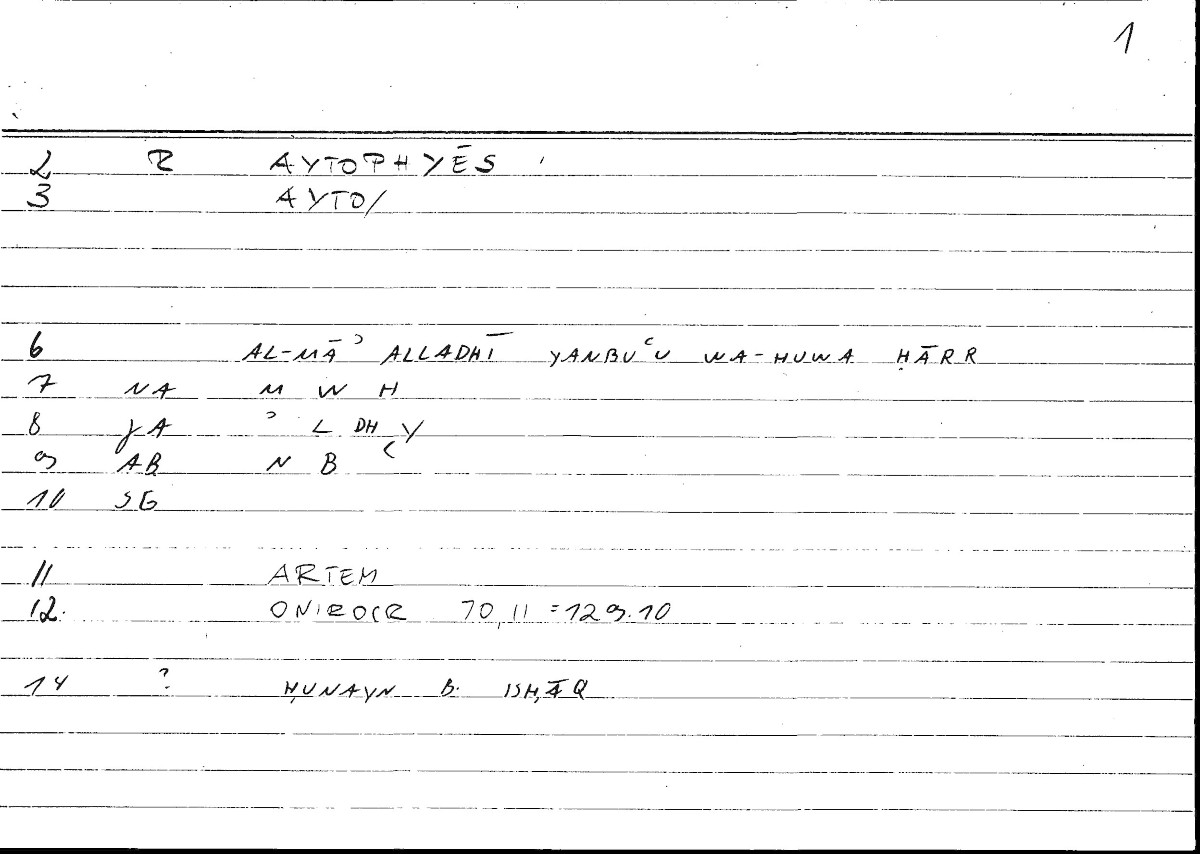 1
2 R AYTOPHYĒS
3 AYTO/
6 AL-MĀʾ ALLADHĪ YANBUʿU WA-HUWA ḤĀRR
7 NA M W H
8 YA ʾ L DH Y
9 AB N B ʿ
10 SG
11 ARTEM
12. ONIROCR 70,11 = 129.10
14 ? ḤUNAYN B. ISḤĀQ